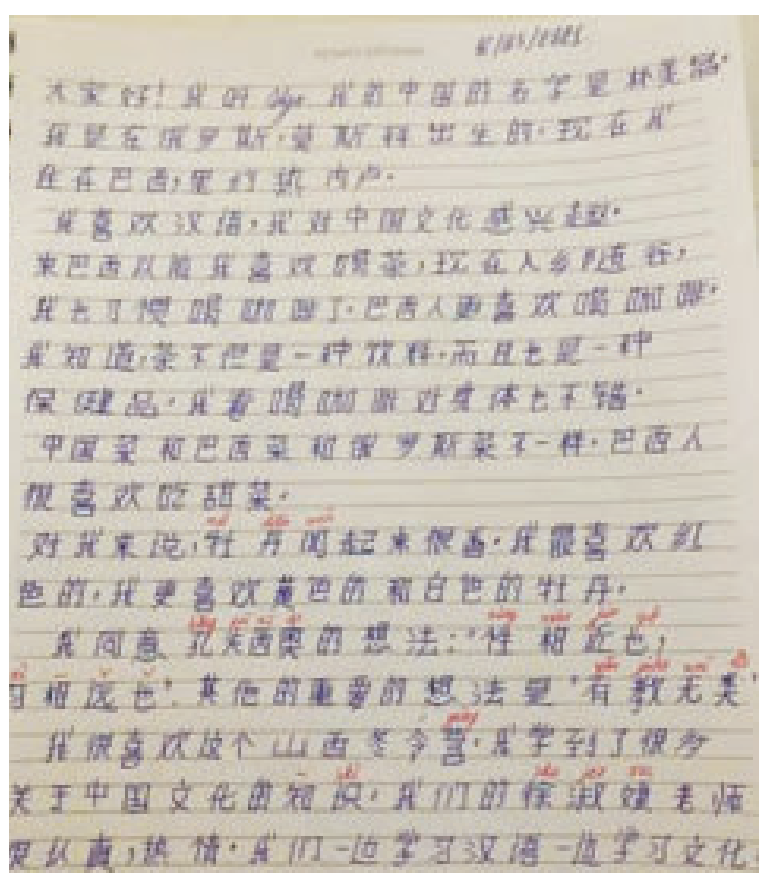 大家好！我叫 Olga 我的中国的名字是林美
我是在俄罗斯，莫斯科出生的。现在我
住在巴西，里约热内卢。
我喜欢汉语，我对中国文化感兴趣。
来巴西以前我喜欢喝茶，现在入乡随俗，
我也习惯喝咖啡了。巴西人更喜欢喝咖啡。
我知道，茶不但是一种饮料，而且也是一种
保健品。我看喝咖啡对身体也不错。
中国菜和巴西菜和俄罗斯菜不一样。巴西人
很喜欢吃甜菜。
对我来说，牡丹闻起来很香。我最喜欢红
色的，我更喜欢黄色的和白色的牡丹。
我同意孔夫西奥的想法："性相近也，
习相远也"。其他的重要的想法是"有教无类"
我很喜欢这个山西冬令营。我学到了很多
关于中国文化的知识，我们的徐淑老师
很认真，热情。我们一边学习汉语一边学习文化。